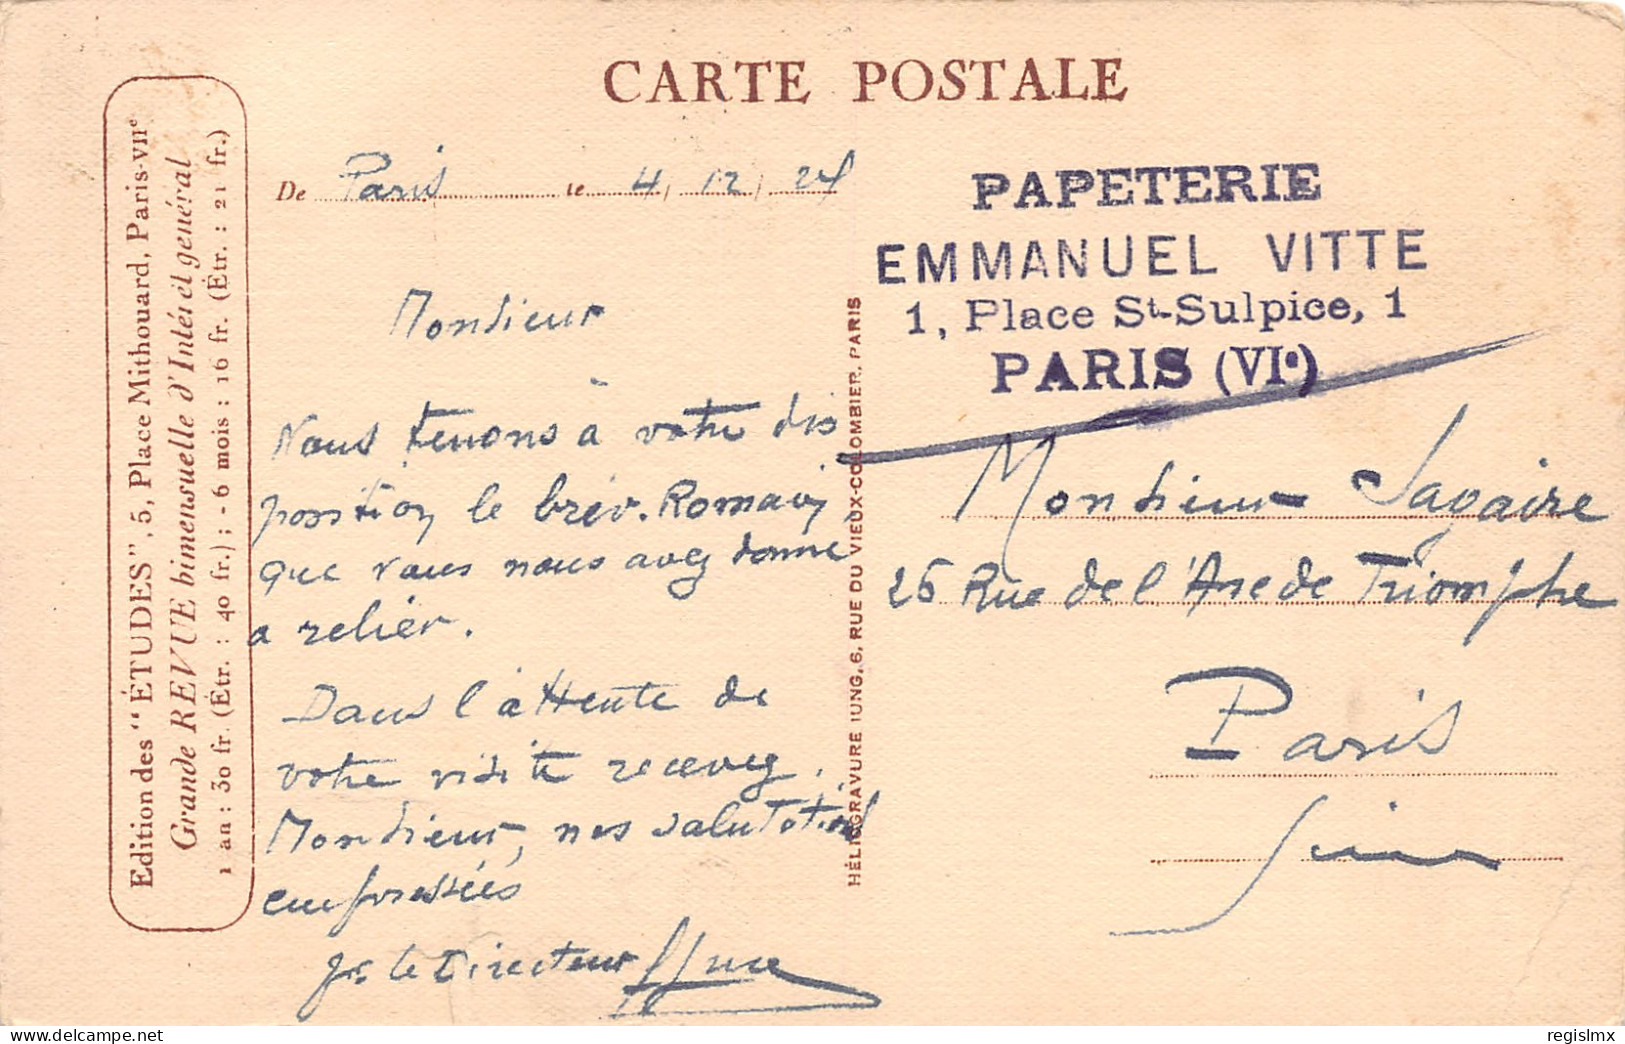 CARTE POSTALE
Edition des "ÉTUDES", 5, Place Mithouard, Paris-VIIe
Grande REVUE bimensuelle d'Intérêt général
1 an : 30 fr. (Étr. : 40 fr.) ; - 6 mois : 16 fr. (Étr. : 21 fr.)
De Paris le 4/12/24
Monsieur
Nous tenons à votre dis
position le brév. Romain
que vous nous avez donné
a relier.
Dans l'attente de
votre visite recevez,
Monsieur, nos salutations
empressées
Le Directeur
HÉLIOGRAVURE IUNG, 6, RUE DU VIEUX-COLOMBIER, PARIS
PAPETERIE
EMMANUEL VITTE
1, Place St-Sulpice, 1
PARIS (VIe)
Monsieur
26 Rue de l'Arc de Triomphe
Paris
regislmx
www.delcampe.net